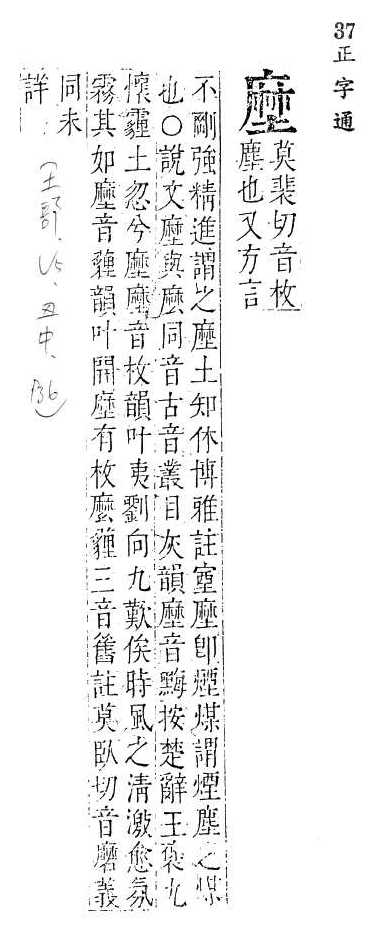 37正字通
塺
莫裴切音枚
塵也又方言
不剛強精進謂之塺土知休博雅註塺即煙煤謂煙塵之煤
也〇說文塺與麽同音古音叢目灰韻塺音黣按楚辭王褒九
懷霾土忽兮塺塺音枚韻叶夷劉向九歎俟時風之清激愈氛
霧其如塺音韻叶開塺有枚麼三音舊註莫臥切音磨義
同未
詳
(土部. 丑中. 136)